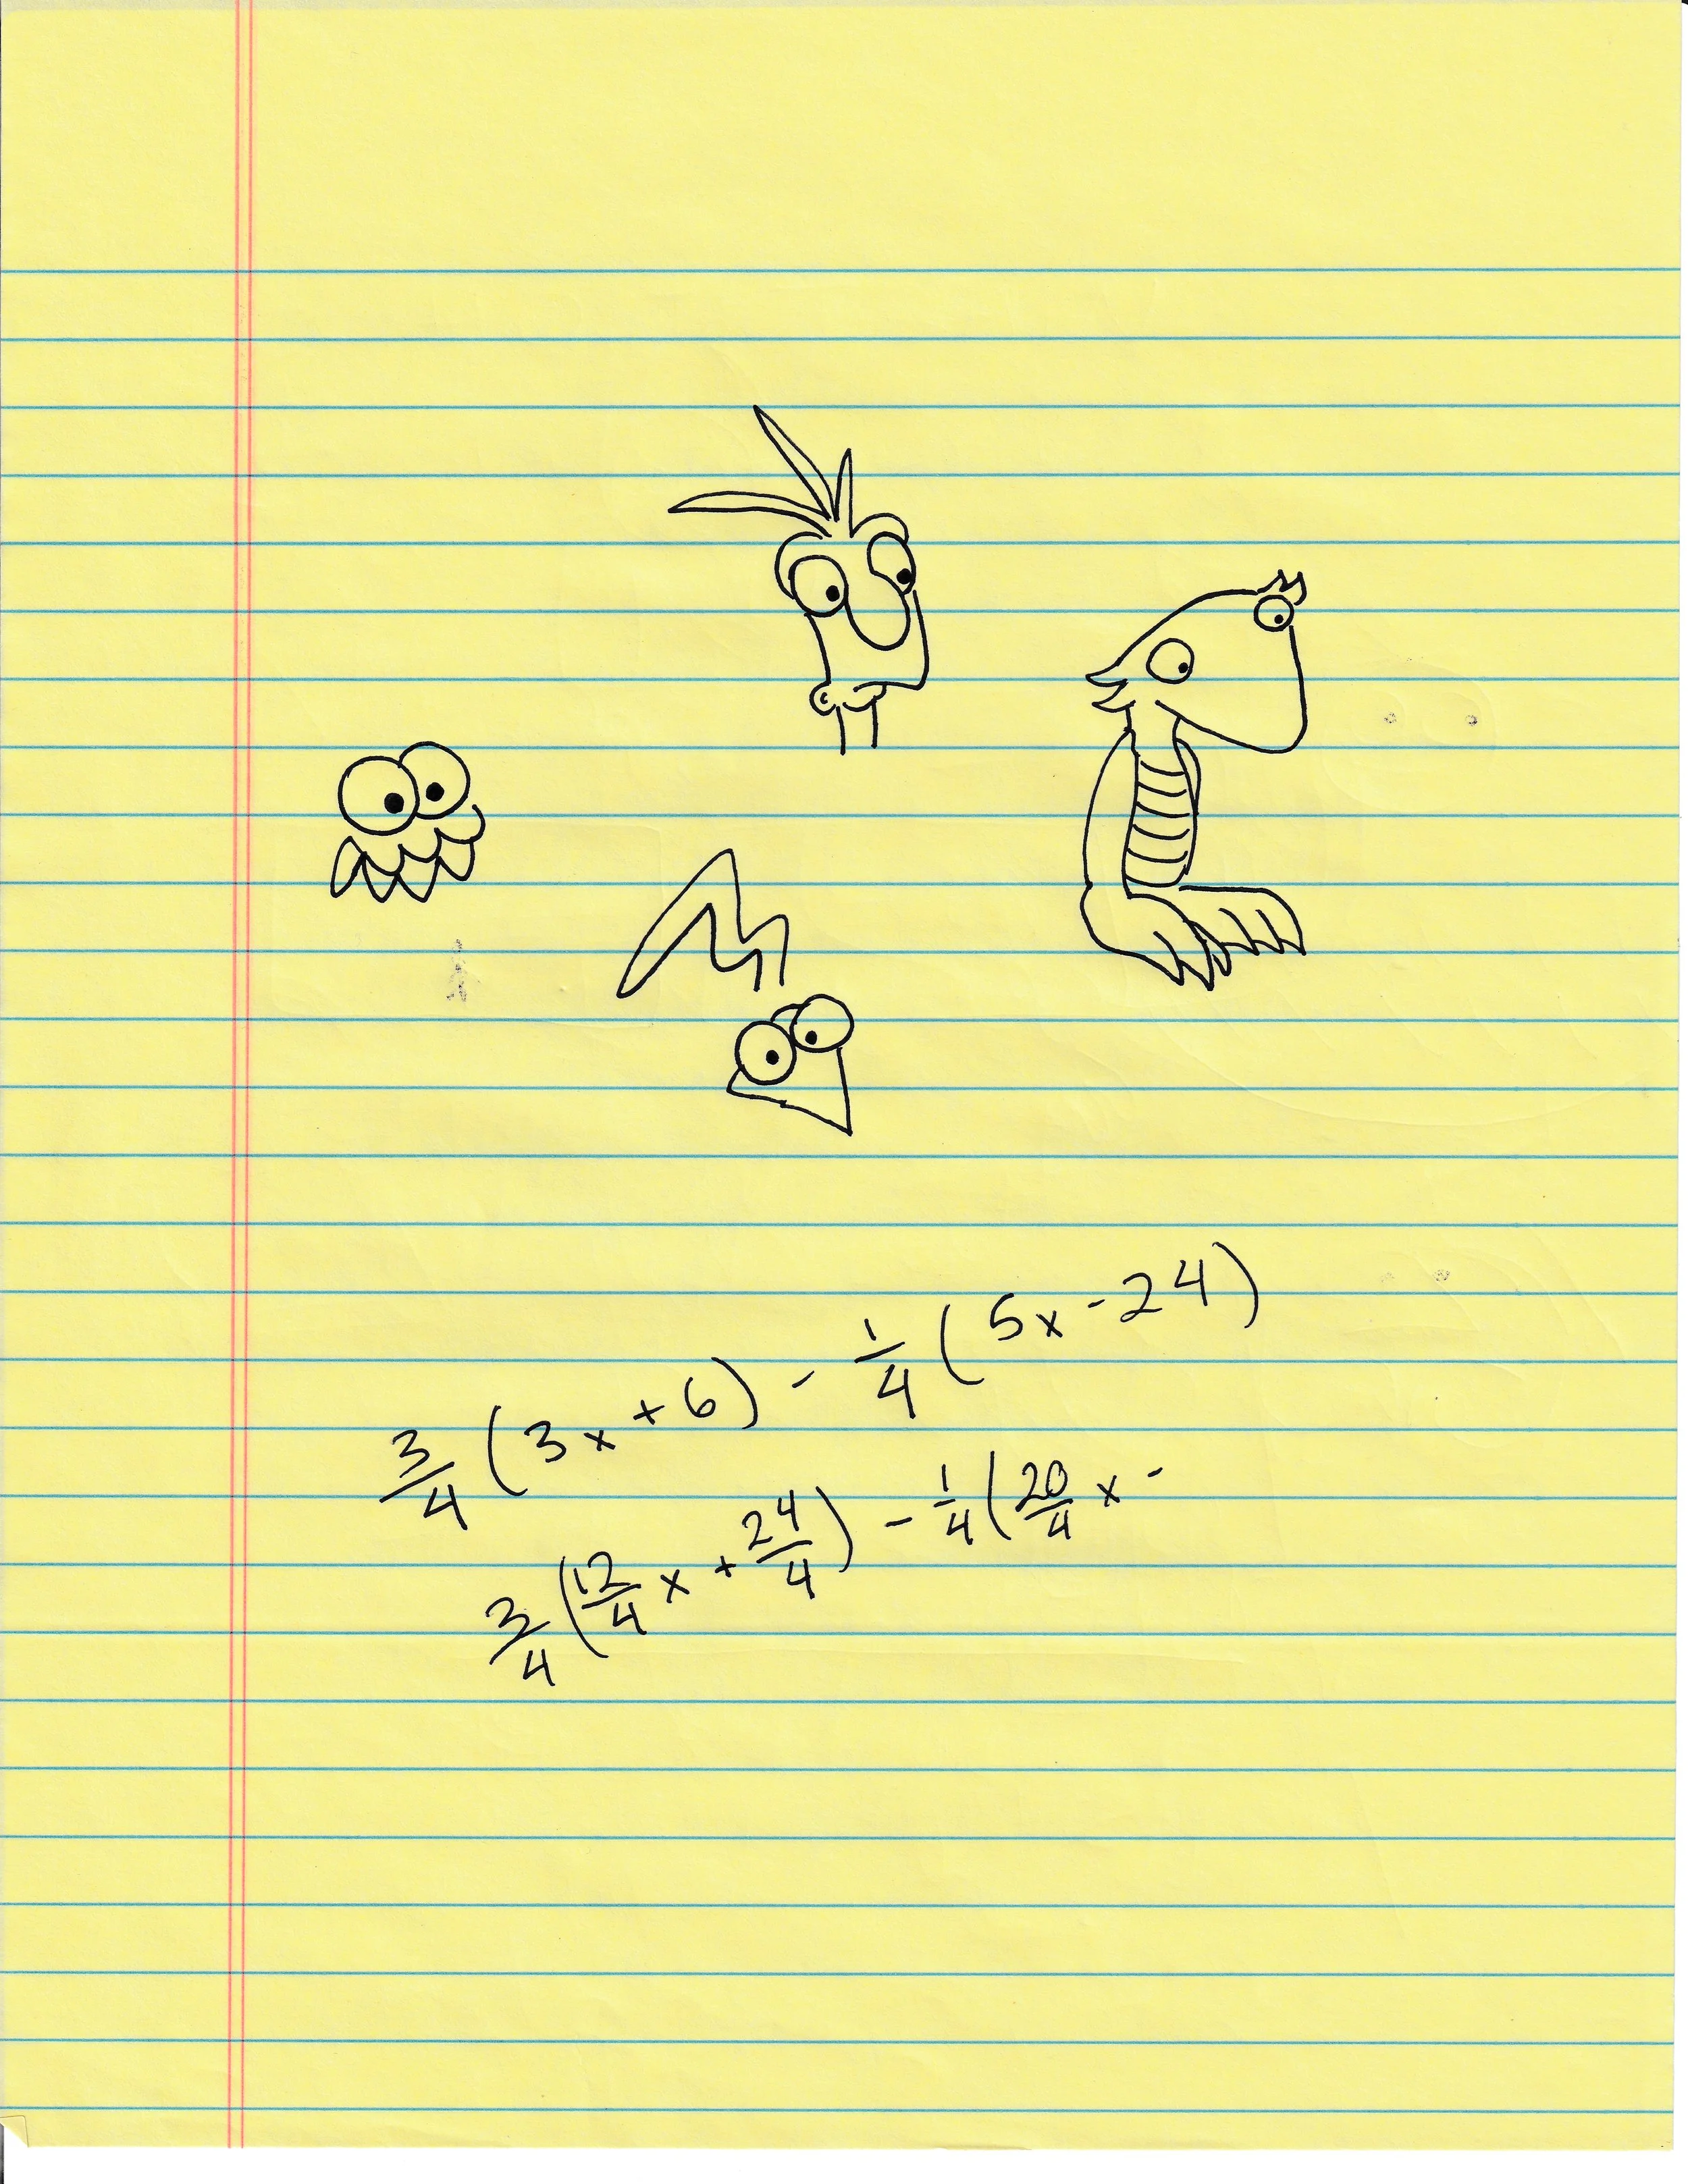 3/4 (3x + 6) - 1/4 (5x - 24)
3/4 (12/4 x + 24/4) - 1/4 (20/4 x -